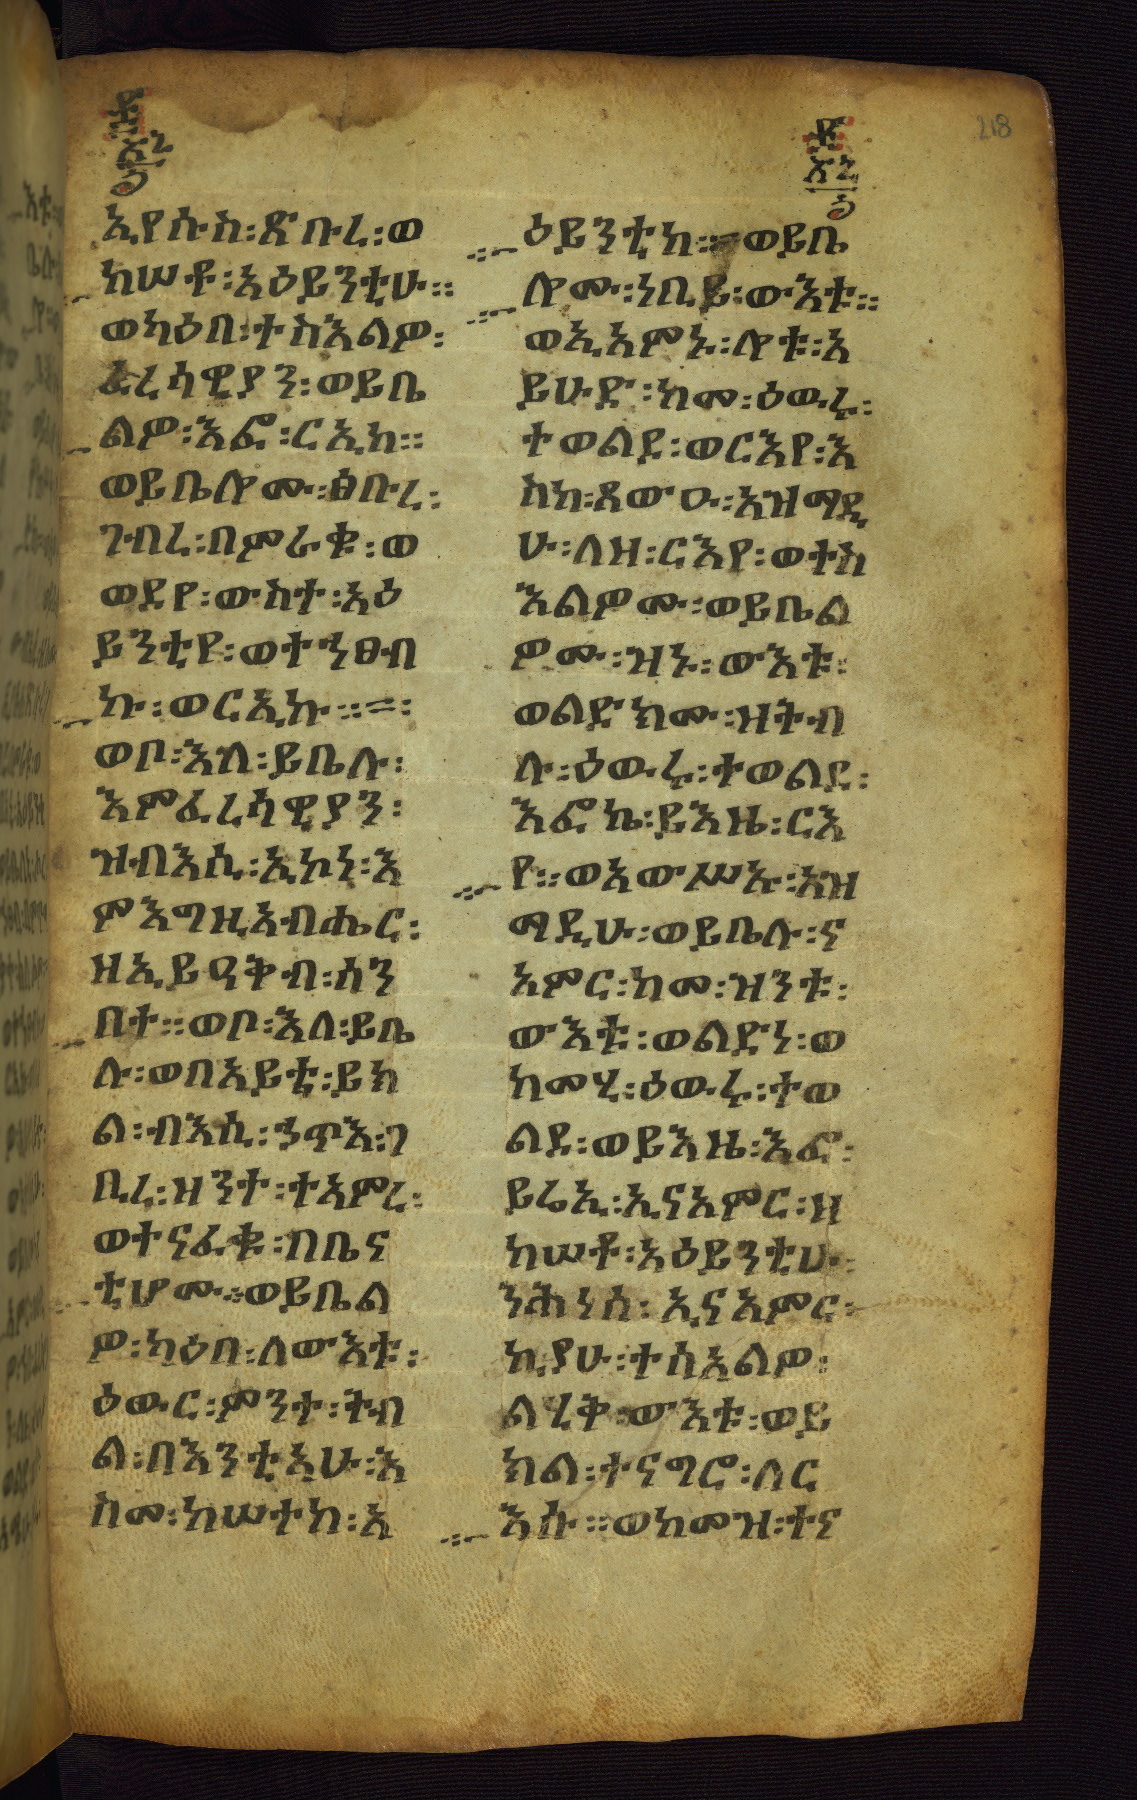 218
ኢየሱስ፡ጽቡረ፡ወ
ከሠቶ፡አዕይንቲሁ።
ወካዕበ፡ተስእልዎ፡
ፈረሳዊያን፡ወይቤ
ልዎ፡እፎ፡ርኢከ።
ወይቤሎሙ፡ፅቡረ፡
ገብረ፡በምራቁ፡ወ
ወደየ፡ውስተ፡አዕ
ይንቲየ፡ወተኀፀብ
ኩ፡ወርኢኩ።=፡
ወቦ፡እለ፡ይቤሉ፡
እምፈረሳዊያን፡
ዝብእሲ፡ኢኮነ፡እ
ምእግዚአብሔር፡
ዘኢይዐቅብ፡ሰን
በተ።ወቦ፡እለ፡ይቤ
ሉ፡ወበአይቲ፡ይክ
ል፡ብእሲ፡ኃጥእ፡ገ
ቢረ፡ዝንተ፡ተአምረ፡
ወተናፈቁ፡በቤና
ቲሆሙ።ወይቤል
ዎ፡ካዕበ፡ለውእቱ፡
ዕውር፡ምንተ፡ትብ
ል፡በእንቲአሁ፡እ
ስመ፡ከሠተከ፡አ
ዕይንቲከ።=ወይቤ
ሎሙ፡ነቢይ፡ውእቱ።
ወኢአምኑ፡ሎቱ፡አ
ይሁድ፡ከመ፡ዕውሩ፡
ተወልደ፡ወርእየ፡እ
ስከ፡ጸውዑ፡አዝማዲ
ሁ፡ለዘ፡ርእየ፡ወተስ
እልዎሙ፡ወይቤል
ዎሙ፡ዝኑ፡ውእቱ፡
ወልድክሙ፡ዘትብ
ሉ፡ዕውሩ፡ተወልደ፡
እፎኬ፡ይእዜ፡ርእ
የ።ወአውሥኡ፡አዝ
ማዲሁ፡ወይቤሉ፡ና
አምር፡ከመ፡ዝንቱ፡
ውእቱ፡ወልድነ፡ወ
ከመሂ፡ዕውሩ፡ተወ
ልደ፡ወይእዜ፡እፎ፡
ይሬኢ፡ኢናአምር፡ዘ
ከሠቶ፡አዕይንቲሁ፡
ንሕነሰ፡ኢናአምር፡
ኪያሁ፡ተስእልዎ፡
ልሂቅ፡ውእቱ፡ወይ
ክል፡ተናግሮ፡ለር
እሱ።ወከመዝ፡ተና